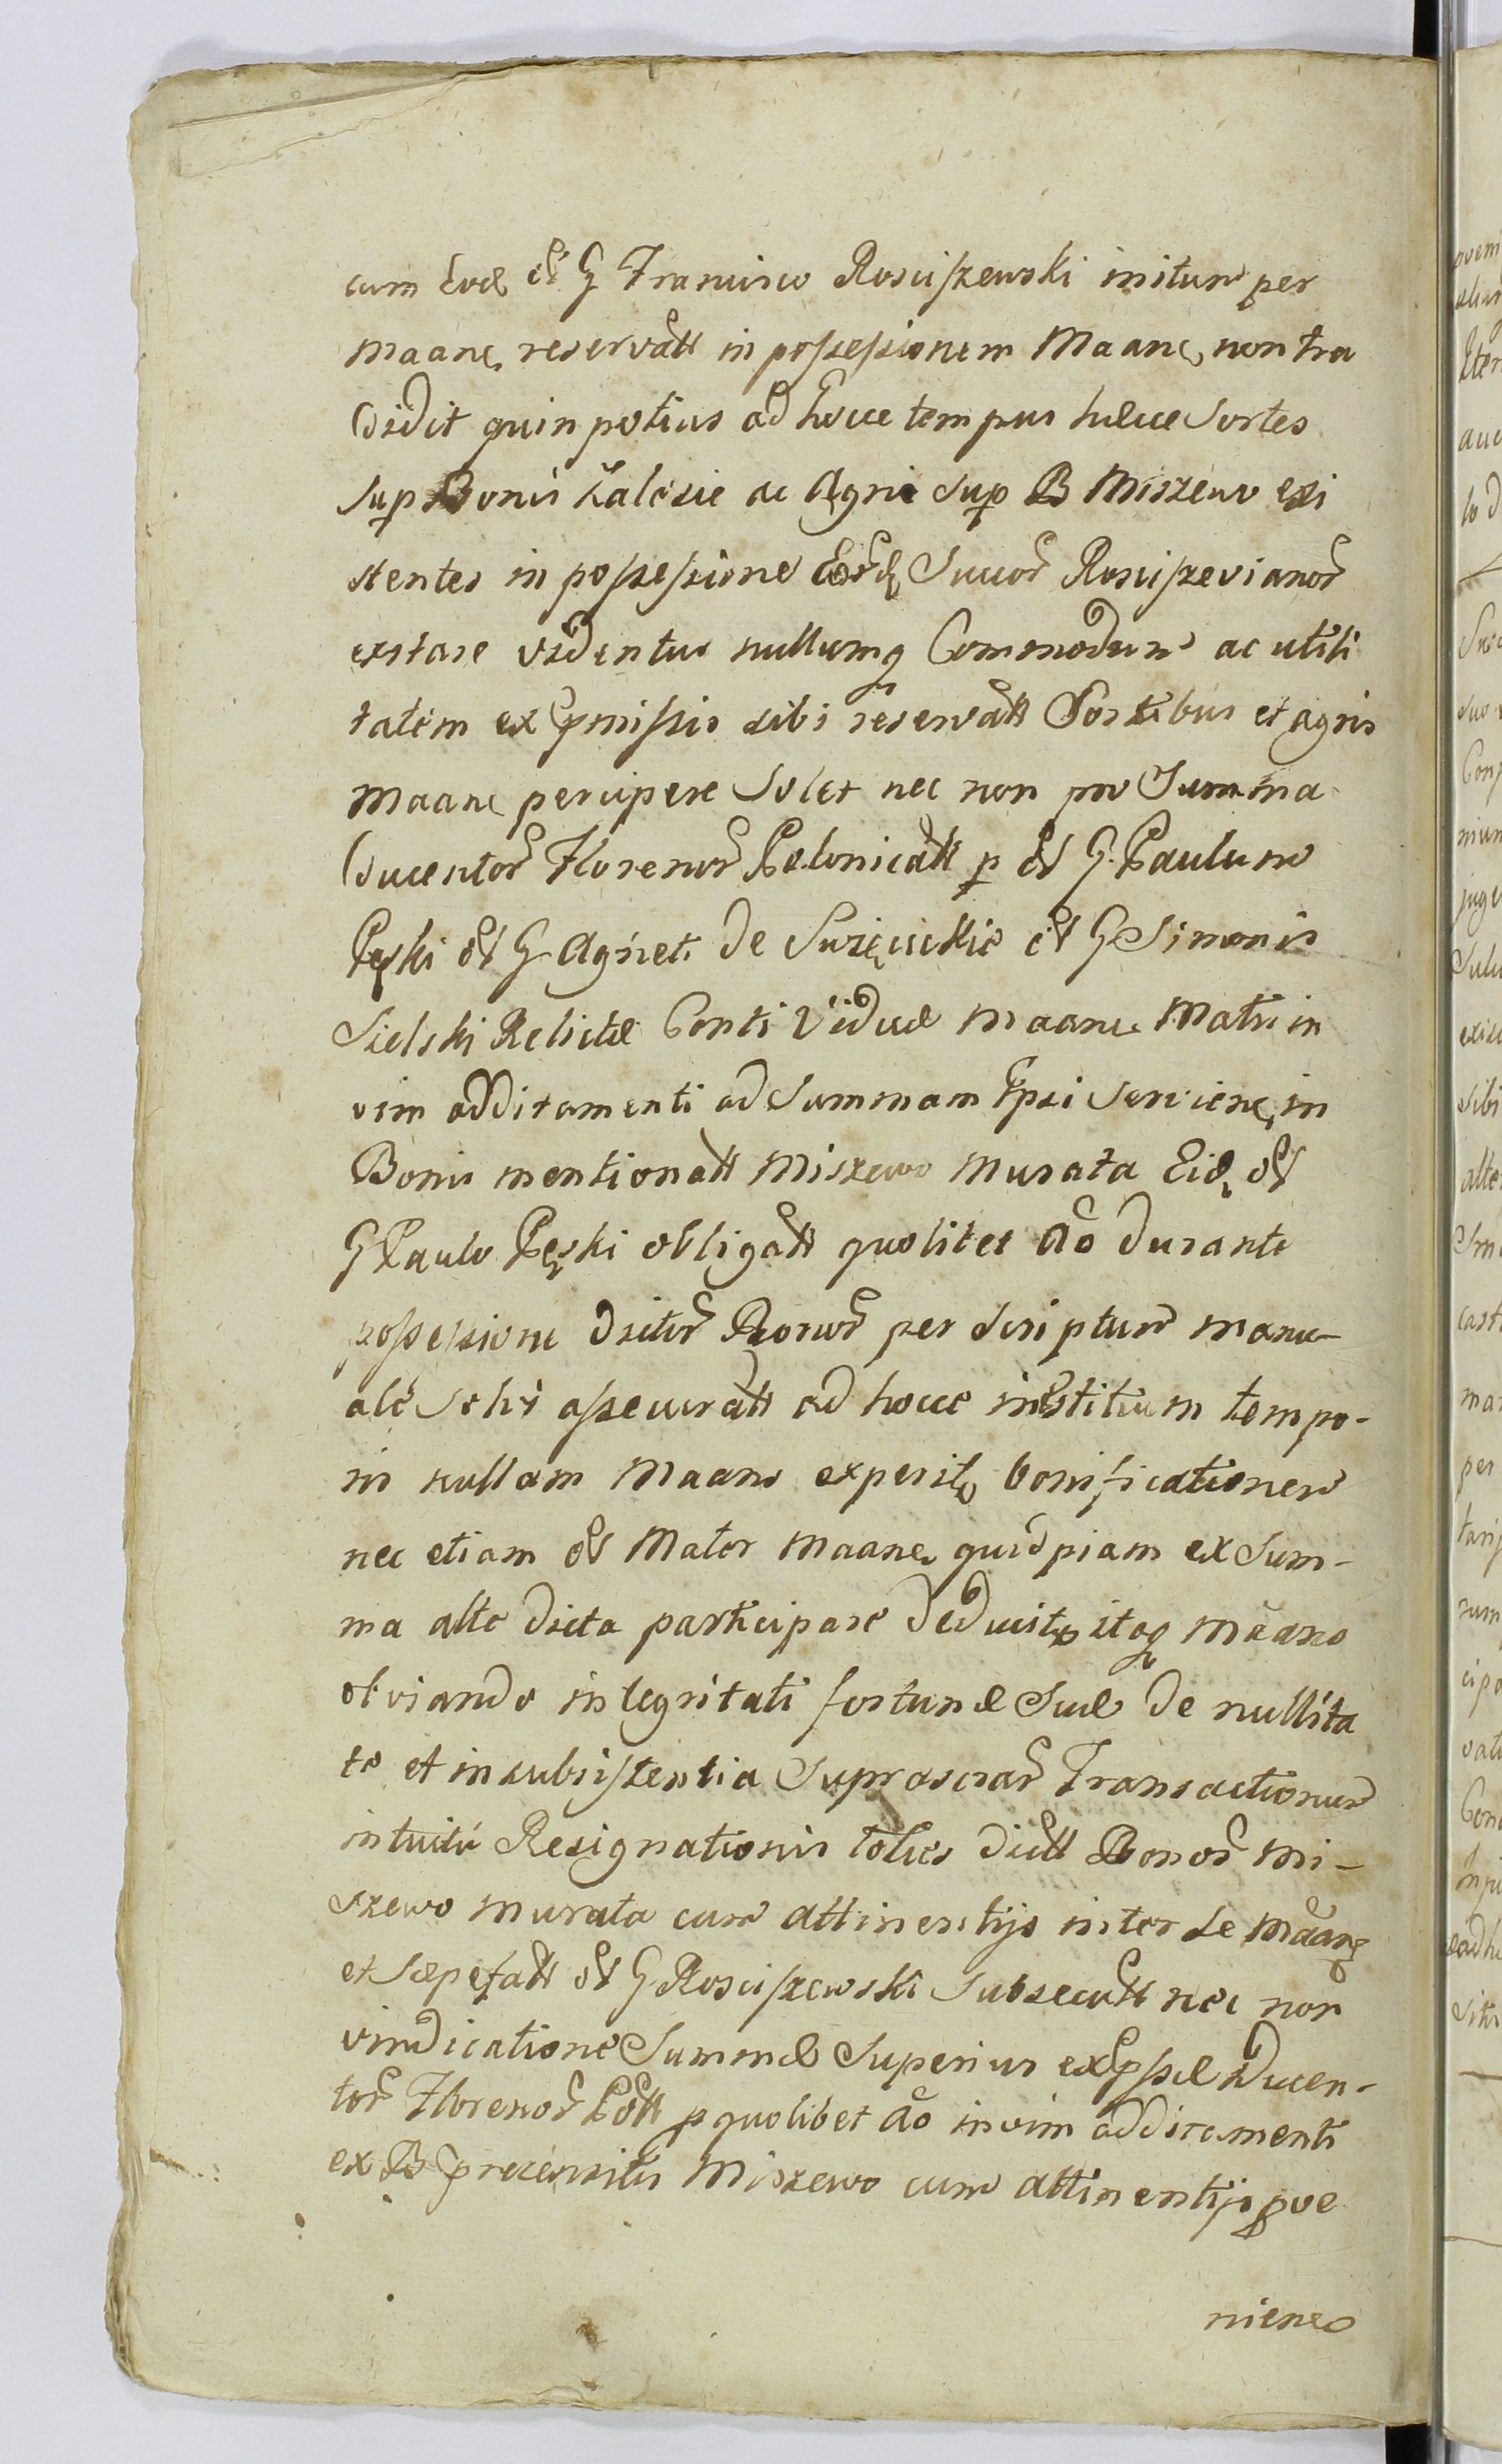 cum Eod. et G Francisco Rosciszewski initum per
Maane reservatt in possessionem Maane, non tra
didit quin potius ad hocce tempus hæcce Sortes
sup Bonis Zalesie ac Agri sup B Miszewo exi
stentes in possessione Eord. Succor Rosciszevianor
exstare videntur nullumq Commodum ac utili
tatem ex pmissis sibi reservatt Sortibus et agris
Maane percipere solet nec non pro Summa
Ducentor Florenor Polonicatt p et G Paulum
Pęski et G Agneti de Suzęcickie et G Simonis
Sielski Relictæ Conti Viduæ Maane Matri in
vim additamenti ad Summam Ipsi serviene, in
Bonis mentionatt Miszewo Murata Eid. et
G Paulo Pęski obligatt quolibet Ao durante
possessione dictor Bonor per scriptum manu-
ale solvi assecuratt ad hocce institium tempo-
ris nullam Maans experitr bonificationem
nec etiam et Mater Maane quidpiam ex Sum-
ma alte dicta participare deducitr itaq Maans
obviando integritati fortunæ Suæ de nullita
te et insubsistentia Suprascrar Transactionum
intuitu Resignationis toties dictt Bonor Mi-
szewo Murata cum attinentijs inter se Maane
et sæpefatt et G Rosciszewski Subsecutt nec non
vindicatione Summæ Superius expssæ Ducen-
tor Florenor Poltt p quolibet Ao in vim additamenti
ex B precensitis Miszewo cum attinentijs pve
niene